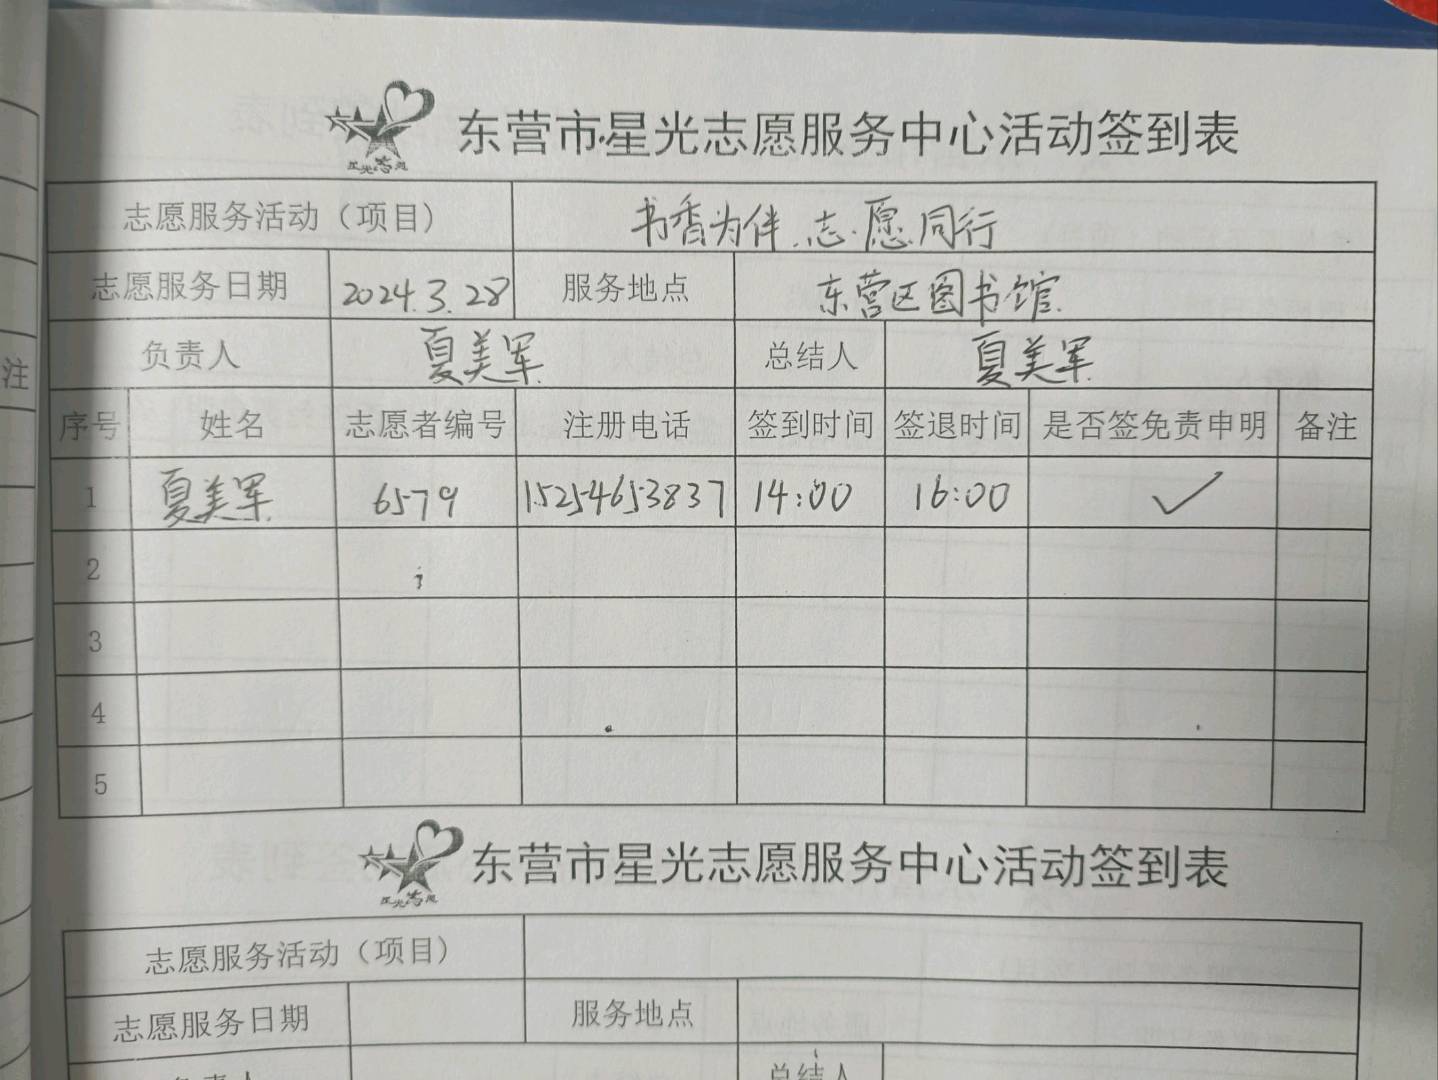 星光志愿
东营市星光志愿服务中心活动签到表
志愿服务活动（项目） 书香为伴.志愿同行
志愿服务日期 2024.3.28 服务地点 东营区图书馆
负责人 夏美军 总结人 夏美军
注
序号 姓名 志愿者编号 注册电话 签到时间 签退时间 是否签免责申明 备注
1 夏美军 6579 15254653837 14:00 16:00 ✓
2
3
4
5
星光志愿
东营市星光志愿服务中心活动签到表
志愿服务活动（项目）
志愿服务日期 服务地点
负责人 总结人